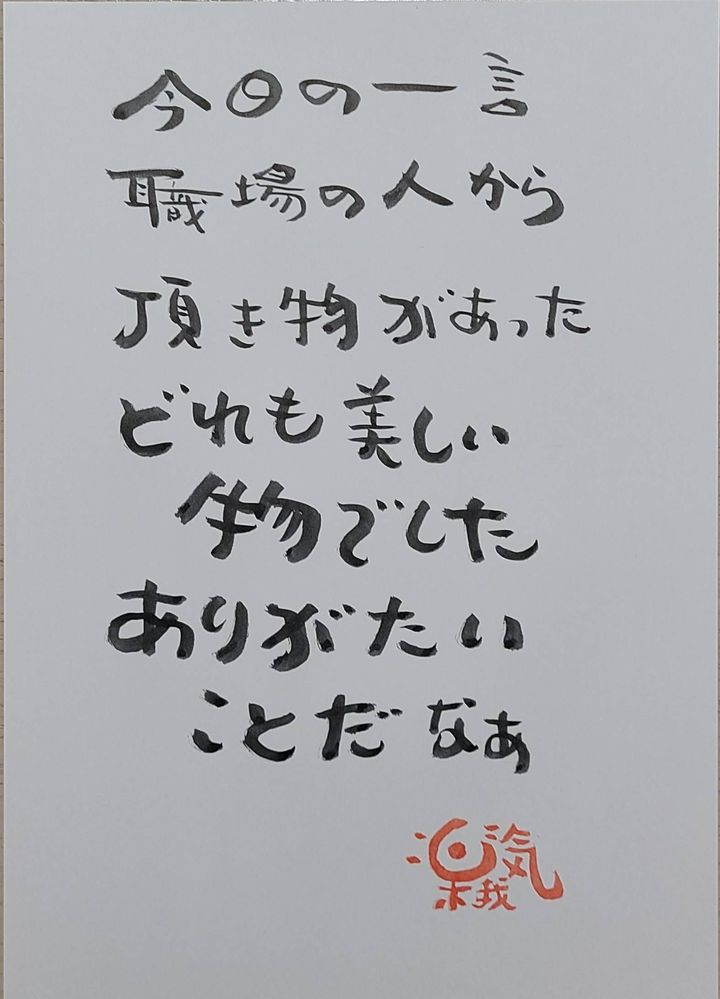 今日の一言
職場の人から
頂き物があった
どれも美しい
物でした
ありがたい
ことだなぁ
楽気
我